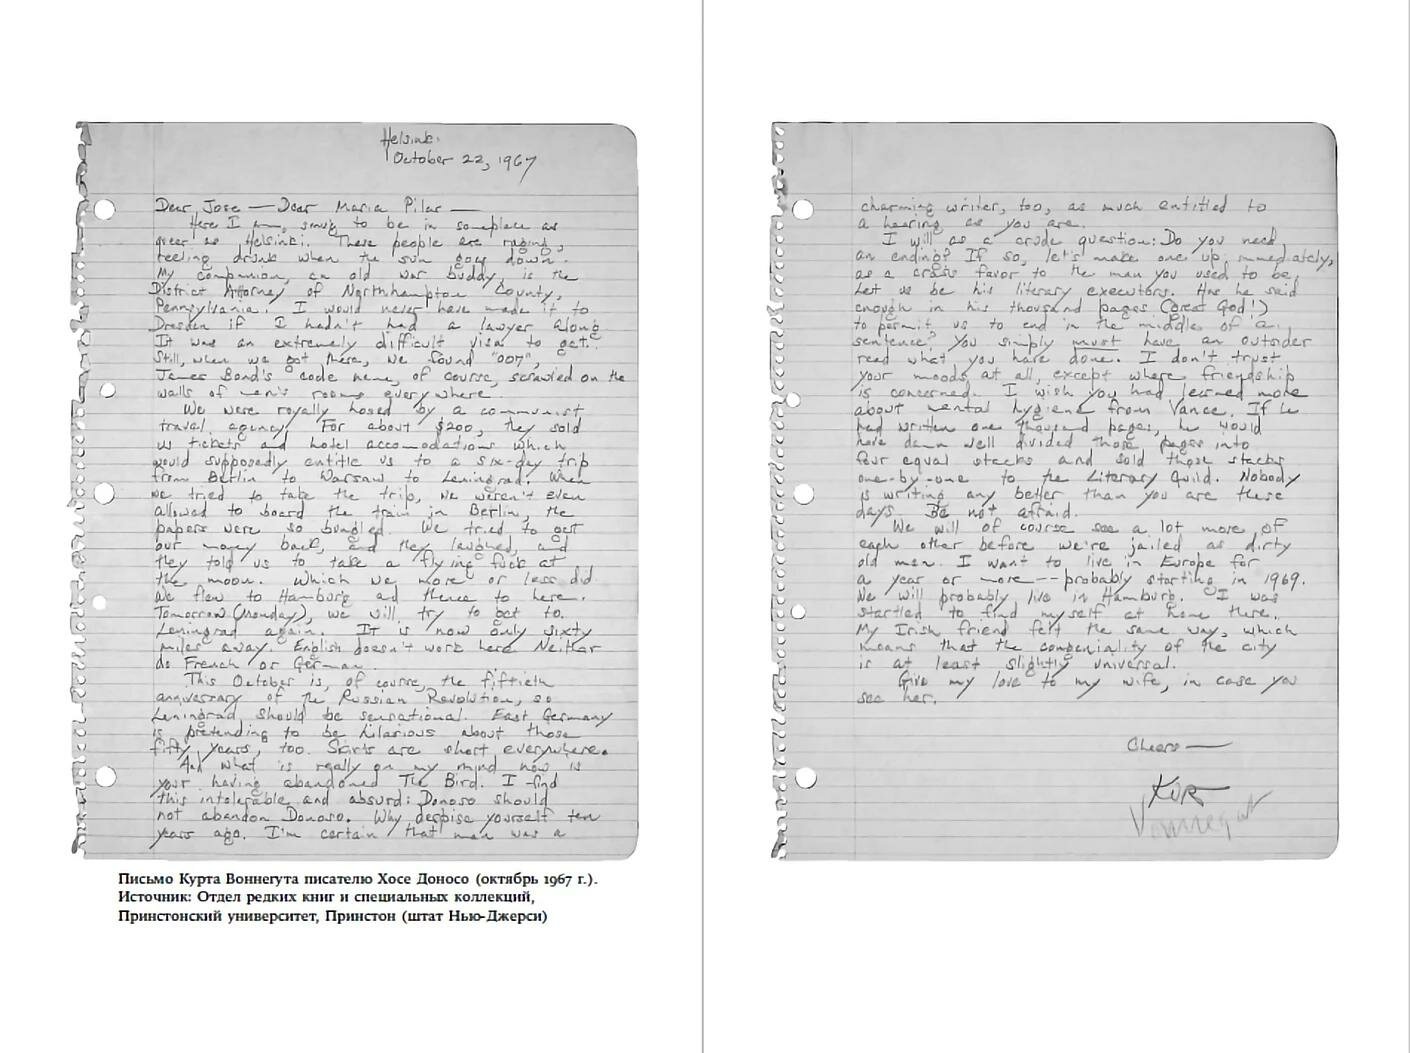 Helsinki
October 22, 1967
Dear Jose — Dear Maria Pilar —
Here I am, snug to be in someplace as
queer as Helsinki. These people are raging,
reeling drunk when the sun goes down.
My companion, an old war buddy, is the
District Attorney of Northhampton County,
Pennsylvania. I would never have made it to
Dresden if I hadn't had a lawyer along.
It was an extremely difficult visa to get.
Still, when we got there, we found "007",
James Bond's code name, of course, scrawled on the
walls of men's rooms everywhere.
We were royally hosed by a communist
travel agency. For about $200, they sold
us tickets and hotel accomodations which
would supposedly entitle us to a six-day trip
from Berlin to Warsaw to Leningrad. When
we tried to take the trip, we weren't even
allowed to board the train in Berlin, the
papers were so bungled. We tried to get
our money back, and they laughed, and
they told us to take a flying fuck at
the moon. Which we more or less did.
We flew to Hamburg and thence to here.
Tomorrow (Monday), we will try to get to
Leningrad again. It is now only sixty
miles away. English doesn't work here. Neither
do French or German.
This October is, of course, the fiftieth
anniversary of the Russian Revolution, so
Leningrad should be sensational. East Germany
is pretending to be hilarious about those
fifty years, too. Skirts are short everywhere.
And what is really on my mind now is
your having abandoned The Bird. I find
this intolerable and absurd: Donoso should
not abandon Donoso. Why despise yourself ten
years ago. I'm certain that man was a
Письмо Курта Воннегута писателю Хосе Доносо (октябрь 1967 г.).
Источник: Отдел редких книг и специальных коллекций,
Принстонский университет, Принстон (штат Нью-Джерси)
charming writer, too, as much entitled to
a hearing as you are.
I will as a crude question: Do you need
an ending? If so, let's make one up immediately,
as a crass favor to the man you used to be.
Let us be his literary executors. Has he said
enough in his thousand pages (Great God!)
to permit us to end in the middle of a
sentence? You simply must have an outsider
read what you have done. I don't trust
your moods at all, except where friendship
is concerned. I wish you had learned more
about mental hygiene from Vance. If he
had written one thousand pages, he would
have damn well divided those pages into
four equal stacks and sold those stacks
one-by-one to the Literary Guild. Nobody
is writing any better than you are these
days. Be not afraid.
We will of course see a lot more of
each other before we're jailed as dirty
old men. I want to live in Europe for
a year or more -- probably starting in 1969.
We will probably live in Hamburg. I was
startled to find myself at home there.
My Irish friend felt the same way, which
means that the congeniality of the city
is at least slightly universal.
Give my love to my wife, in case you
see her.
Cheers —
Kurt
Vonnegut